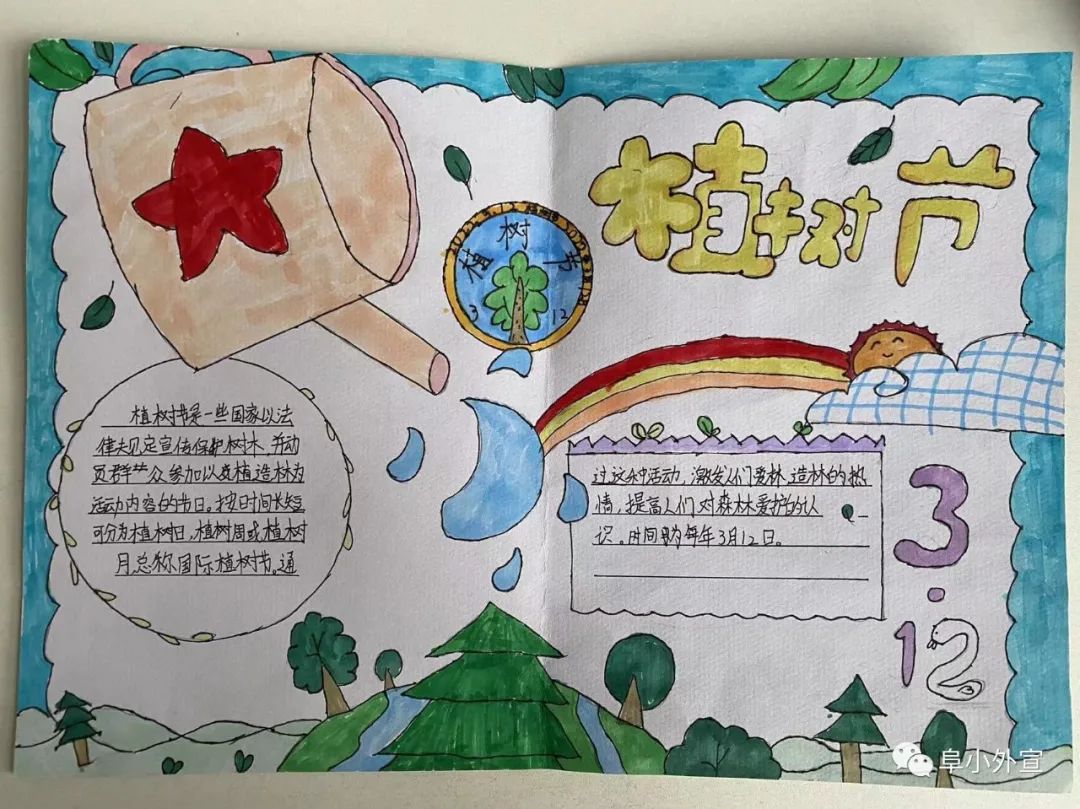 植树节
植树节
3 12
植树节是一些国家以法
律夫见定宣传保护树木,并动
员群艹众参加以变植造林为
活动内容的节日。按时间长短
可分为植树日,植树周或植树
月总称国际植树节。通
过这个中活动,激发人们爱林、造林的热
情,提高人们对森林爱护的认
识。时间为每年3月12日。
3
·
12
阜小外宣